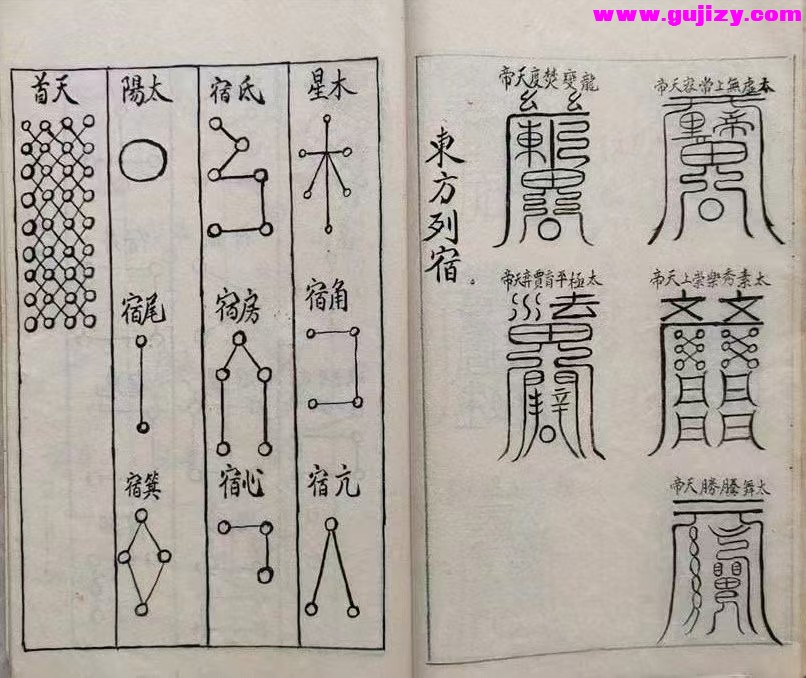 www.gujizy.com
太虛無上常容天帝
龍變焚度天帝
太素秀樂崇上天帝
太極平育賈奕天帝
太舞騰勝天帝
東方列宿。
木星
角宿
亢宿
氐宿
房宿
心宿
太陽
尾宿
箕宿
天首